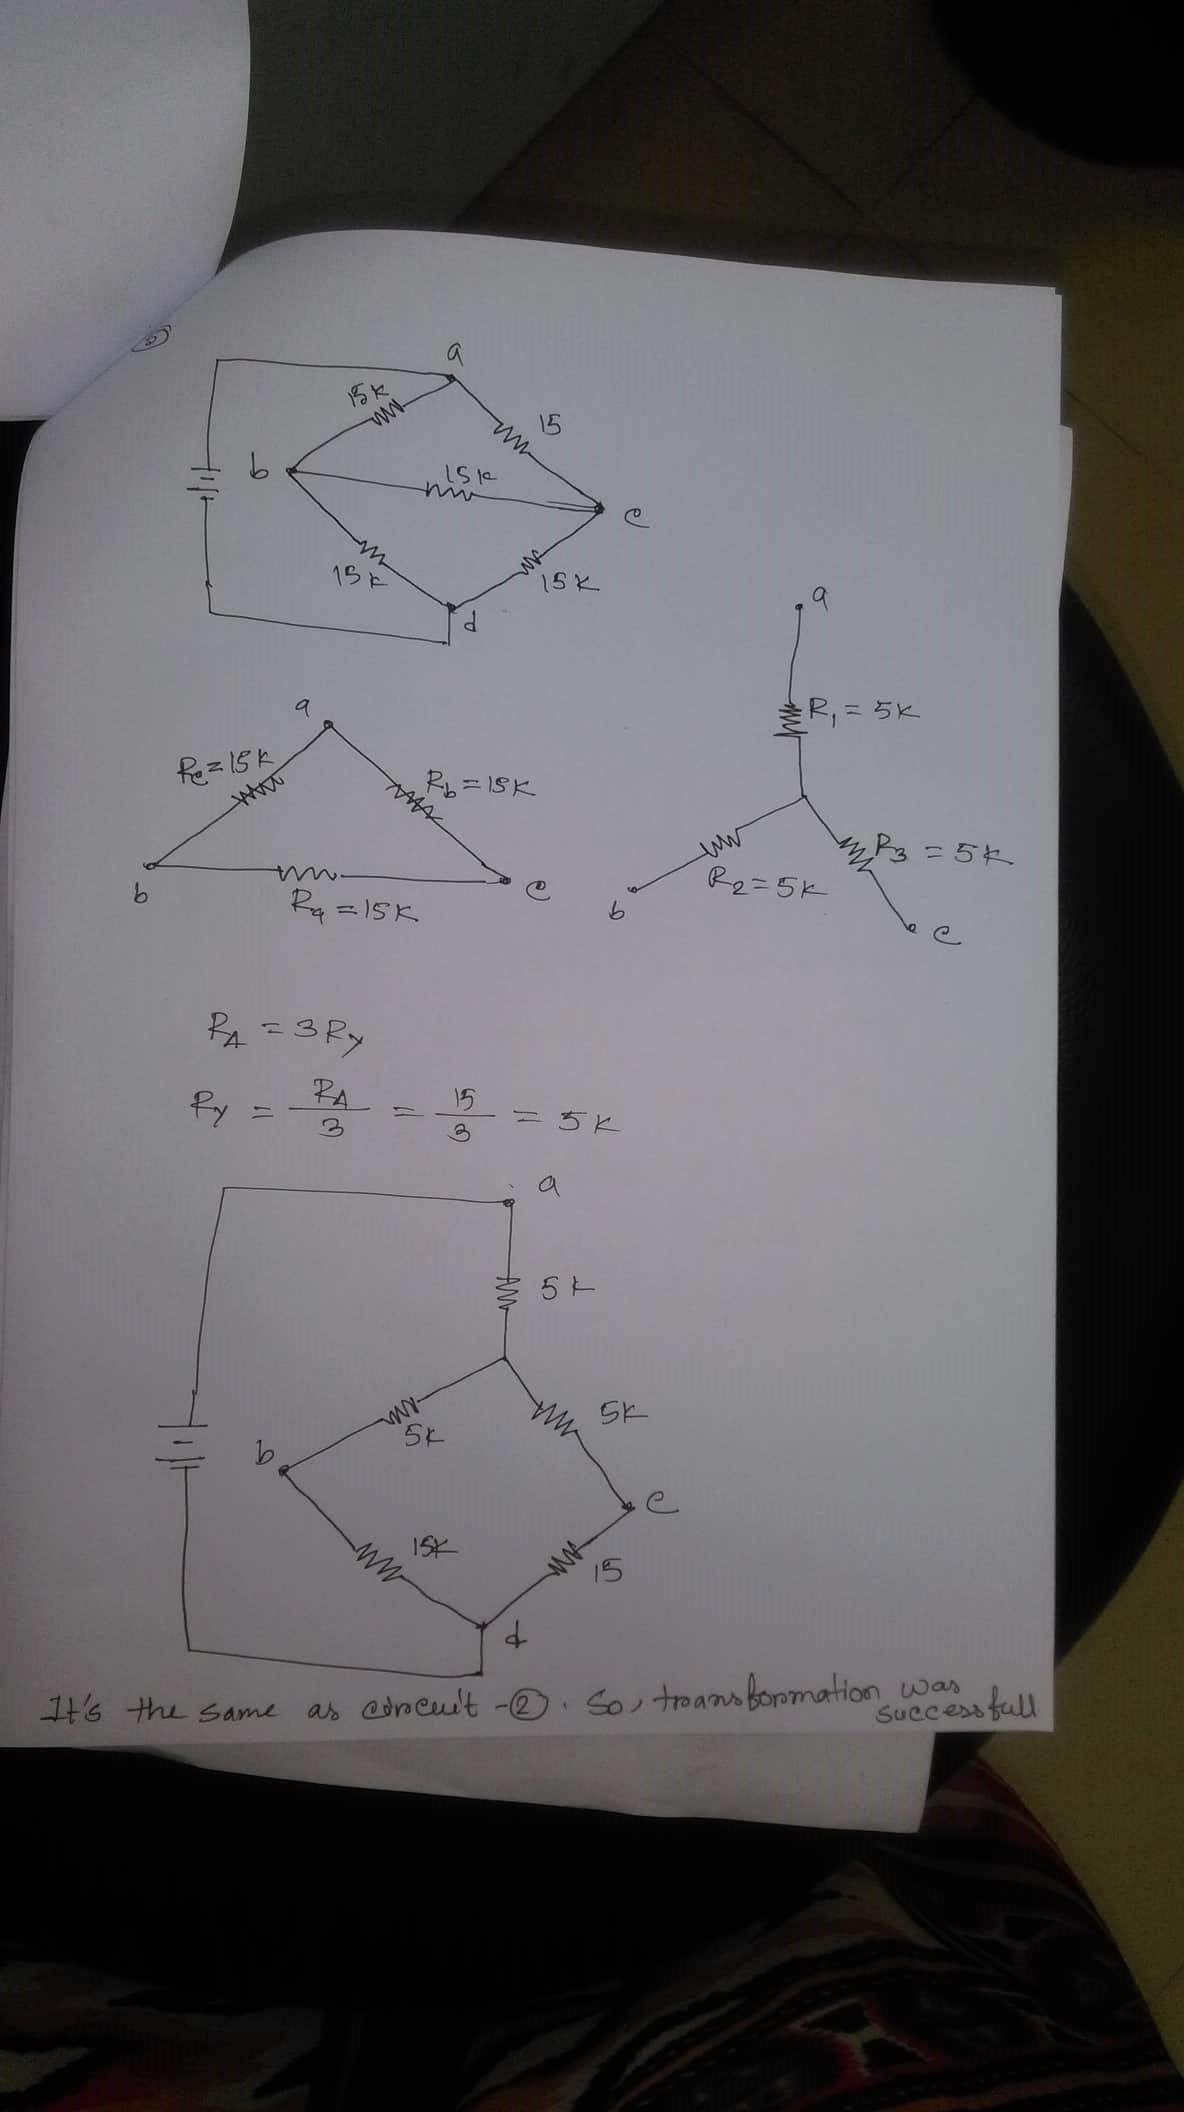 a
15K
15
b
15K
c
15K
15K
d
a
R1 = 5K
R3 = 5K
R2 = 5K
b
c
a
Rc = 15K
Rb = 15K
b
c
Ra = 15K
RΔ = 3RY
RY = RΔ/3 = 15/3 = 5K
a
5K
5K
5K
b
c
15K
15
d
It's the same as circuit -②. So, transformation was
successfull